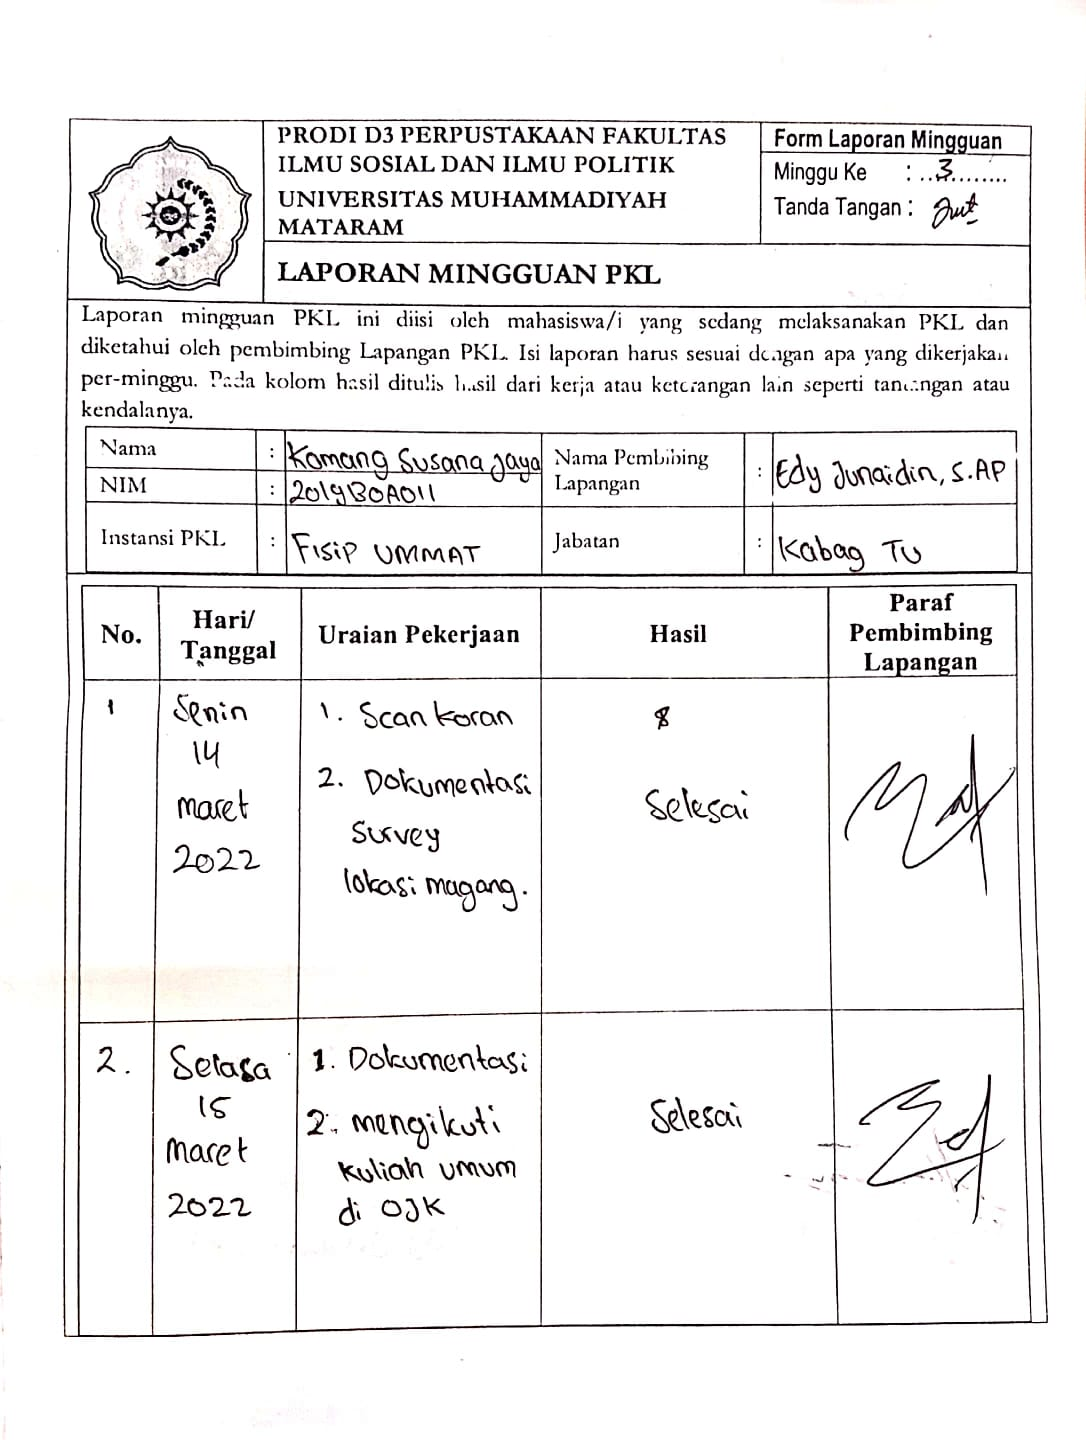 PRODI D3 PERPUSTAKAAN FAKULTAS
ILMU SOSIAL DAN ILMU POLITIK
UNIVERSITAS MUHAMMADIYAH
MATARAM
LAPORAN MINGGUAN PKL
Form Laporan Mingguan
Minggu Ke : ..3........
Tanda Tangan :
Laporan mingguan PKL ini diisi oleh mahasiswa/i yang sedang melaksanakan PKL dan
diketahui oleh pembimbing Lapangan PKL. Isi laporan harus sesuai dengan apa yang dikerjakan
per-minggu. Pada kolom hasil ditulis hasil dari kerja atau keterangan lain seperti tantangan atau
kendalanya.
Nama : Komang Susana Jaya
NIM : 2019B0A011
Nama Pembibing
Lapangan : Edy Junaidin, S.AP
Instansi PKL : Fisip UMMAT
Jabatan : Kabag TU
No.
Hari/
Tanggal
Uraian Pekerjaan
Hasil
Paraf
Pembimbing
Lapangan
1
Senin
14
maret
2022
1. Scan koran
2. Dokumentasi
Survey
lokasi magang.
8
Selesai
2.
Selasa
15
maret
2022
1. Dokumentasi
2. mengikuti
kuliah umum
di OJK
Selesai